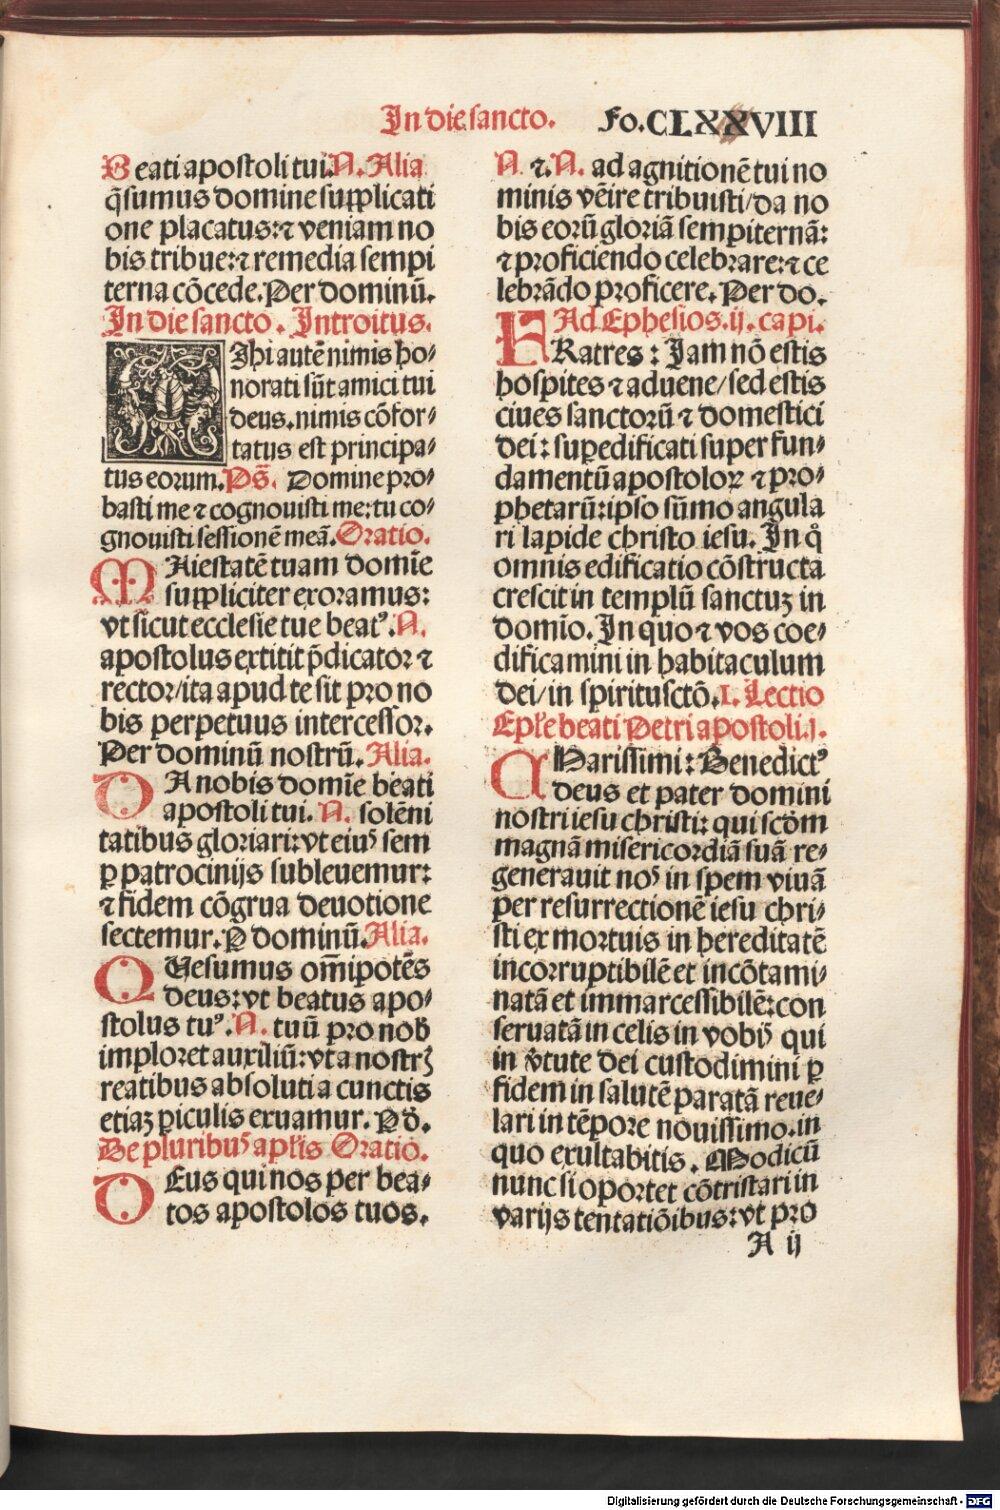 In die sancto. Fo. CLXXVIII
Beati apostoli tui. N. Alia
q̄sumus domine supplicati
one placatus: ⁊ veniam no
bis tribue: ⁊ remedia sempi
terna cōcede. Per dominū.
In die sancto. Introitus.
Ihi autē nimis ho⸗
norati sūt amici tui
deus. nimis cōfor⸗
tatus est principa⸗
tus eorum. Ps̄. Domine pro⸗
basti me ⁊ cognouisti me: tu co⸗
gnouisti sessionē meā. Oratio.
MAiestatē tuam domīe
suppliciter exoramus:
vt sīcut ecclesie tue beatꝰ. N.
apostolus extitit p̄dicator ⁊
rector/ ita apud te sit pro no
bis perpetuus intercessor.
Per dominū nostrū. Alia.
DA nobis domīe beati
apostoli tui. N. solēni
tatibus gloriari: vt eiuꝰ sem
ꝑ patrocinijs subleuemur:
⁊ fidem cōgrua deuotione
sectemur. P dominū. Alia.
QUesumus om̄ipotēs
deus: vt beatus apo⸗
stolus tuꝰ. N. tuū pro nob̄
imploret auxiliū: vt a nostrꝭ
reatibus absoluti a cunctis
etiaꝫ ꝑiculis exuamur. P d̄.
De pluribuꝰ apl̄is Oratio.
DEus qui nos per bea⸗
tos apostolos tuos.
N. ⁊. N. ad agnitionē tui no
minis vēire tribuisti/ da no
bis eorū gloriā sempiternā:
⁊ proficiendo celebrare: ⁊ ce
lebrādo proficere. Per do.
Ad Ephesios. ij. capi.
FRatres: Jam nō estis
hospites ⁊ aduene/ sed estis
ciues sanctorū ⁊ domestici
dei: suꝑedificati super fun⸗
damentū apostoloꝝ ⁊ pro⸗
phetarū: ipso sūmo angula
ri lapide christo iesu. In qͦ
omnis edificatio cōstructa
crescit in templū sanctuꝫ in
domīo. In quo ⁊ vos coe⸗
dificamini in habitaculum
dei/ in spiritu sctō. I. Lectio
Epl̄e beati Petri apostoli. j.
CHarissimi: Benedictꝰ
deus et pater domini
nostri iesu christi: qui scd̄m
magnā misericordiā suā re⸗
generauit noꝰ in spem viuā
per resurrectionē iesu chri⸗
sti ex mortuis in hereditatē
incorruptibilē et incōtami⸗
natā et immarcessibilē: con
seruatā in celis in vobiꝭ qui
in v̄tute dei custodimini ꝑ
fidem in salutē paratā reue⸗
lari in tēpore nouissimo. in
quo exultabitis. Modicū
nunc si oportet cōtristari in
varijs tentatiōibus: vt pro
A ij
Digitalisierung gefördert durch die Deutsche Forschungsgemeinschaft - DFG